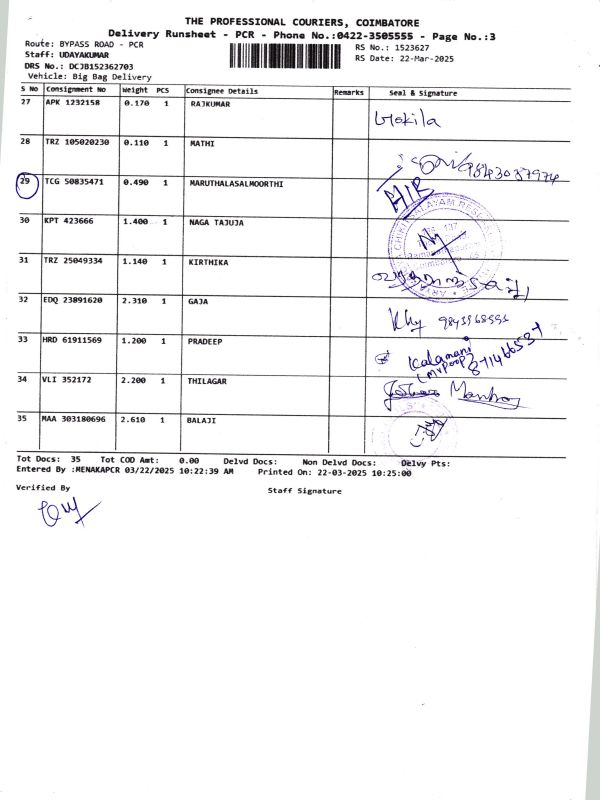 THE PROFESSIONAL COURIERS, COIMBATORE
Delivery Runsheet - PCR - Phone No.:0422-3505555 - Page No.:3
Route: BYPASS ROAD - PCR RS No.: 1523627
Staff: UDAYAKUMAR RS Date: 22-Mar-2025
DRS No.: DCJB152362703
Vehicle: Big Bag Delivery
S No Consignment No Weight PCS Consignee Details Remarks Seal & Signature
27 APK 1232158 0.170 1 RAJKUMAR Gokila
28 TRZ 105020230 0.110 1 MATHI
29 TCG 50835471 0.490 1 MARUTHALASALMOORTHI
30 KPT 423666 1.400 1 NAGA TAJUJA
31 TRZ 25049334 1.140 1 KIRTHIKA
32 EDQ 23891620 2.310 1 GAJA
33 HRD 61911569 1.200 1 PRADEEP Kalamani
34 VLI 352172 2.200 1 THILAGAR
35 MAA 303180696 2.610 1 BALAJI
Tot Docs: 35 Tot COD Amt: 0.00 Delvd Docs: Non Delvd Docs: Delvy Pts:
Entered By :MENAKAPCR 03/22/2025 10:22:39 AM Printed On: 22-03-2025 10:25:00
Verified By Staff Signature